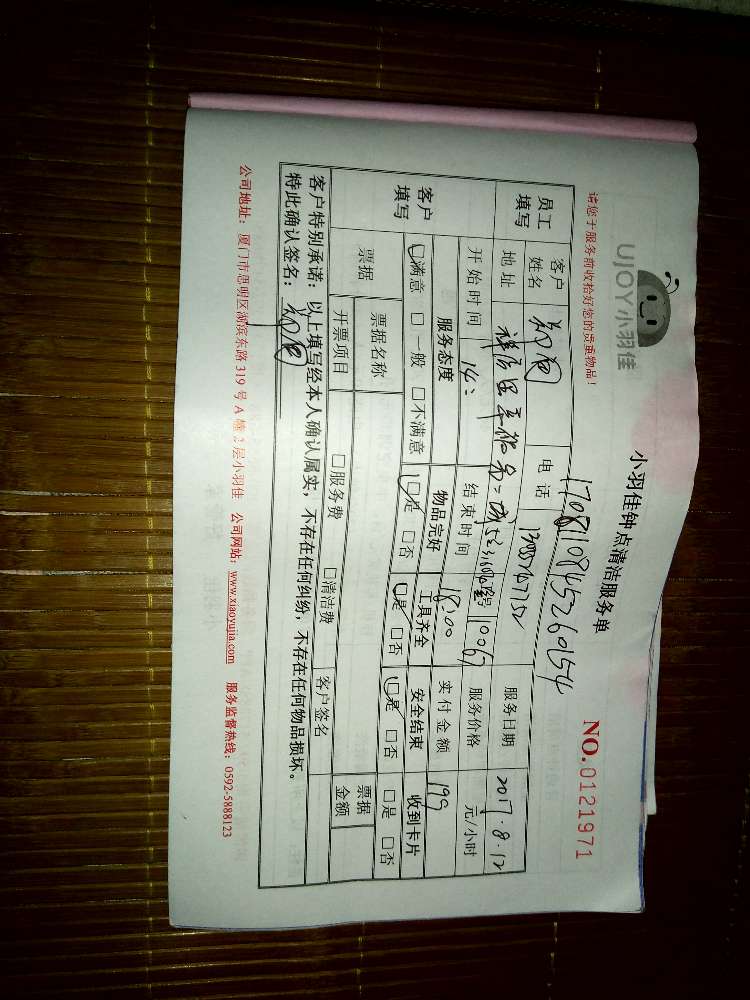 UJOY小羽佳
小羽佳钟点清洁服务单
NO.0121971
请您于服务前收拾好您的贵重物品!
1708110845260154
员工填写
客户姓名
电话
服务日期 2017.8.12
地址
1006
服务价格 元/小时
开始时间 14:
结束时间 18:00
实付金额 199
客户填写
服务态度 物品完好 工具齐全 安全结束 收到卡片
□满意 □一般 □不满意 □是 □否 □是 □否 □是 □否 □是 □否
票据
票据名称
票据金额
开票项目 □服务费 □清洁费 客户签名
客户特别承诺:以上填写经本人确认属实,不存在任何纠纷,不存在任何物品损坏。
特此确认签名:
公司地址:厦门市思明区湖滨东路319号A幢2层小羽佳 公司网站:www.xiaoyujia.com 服务监督热线:0592-5888123